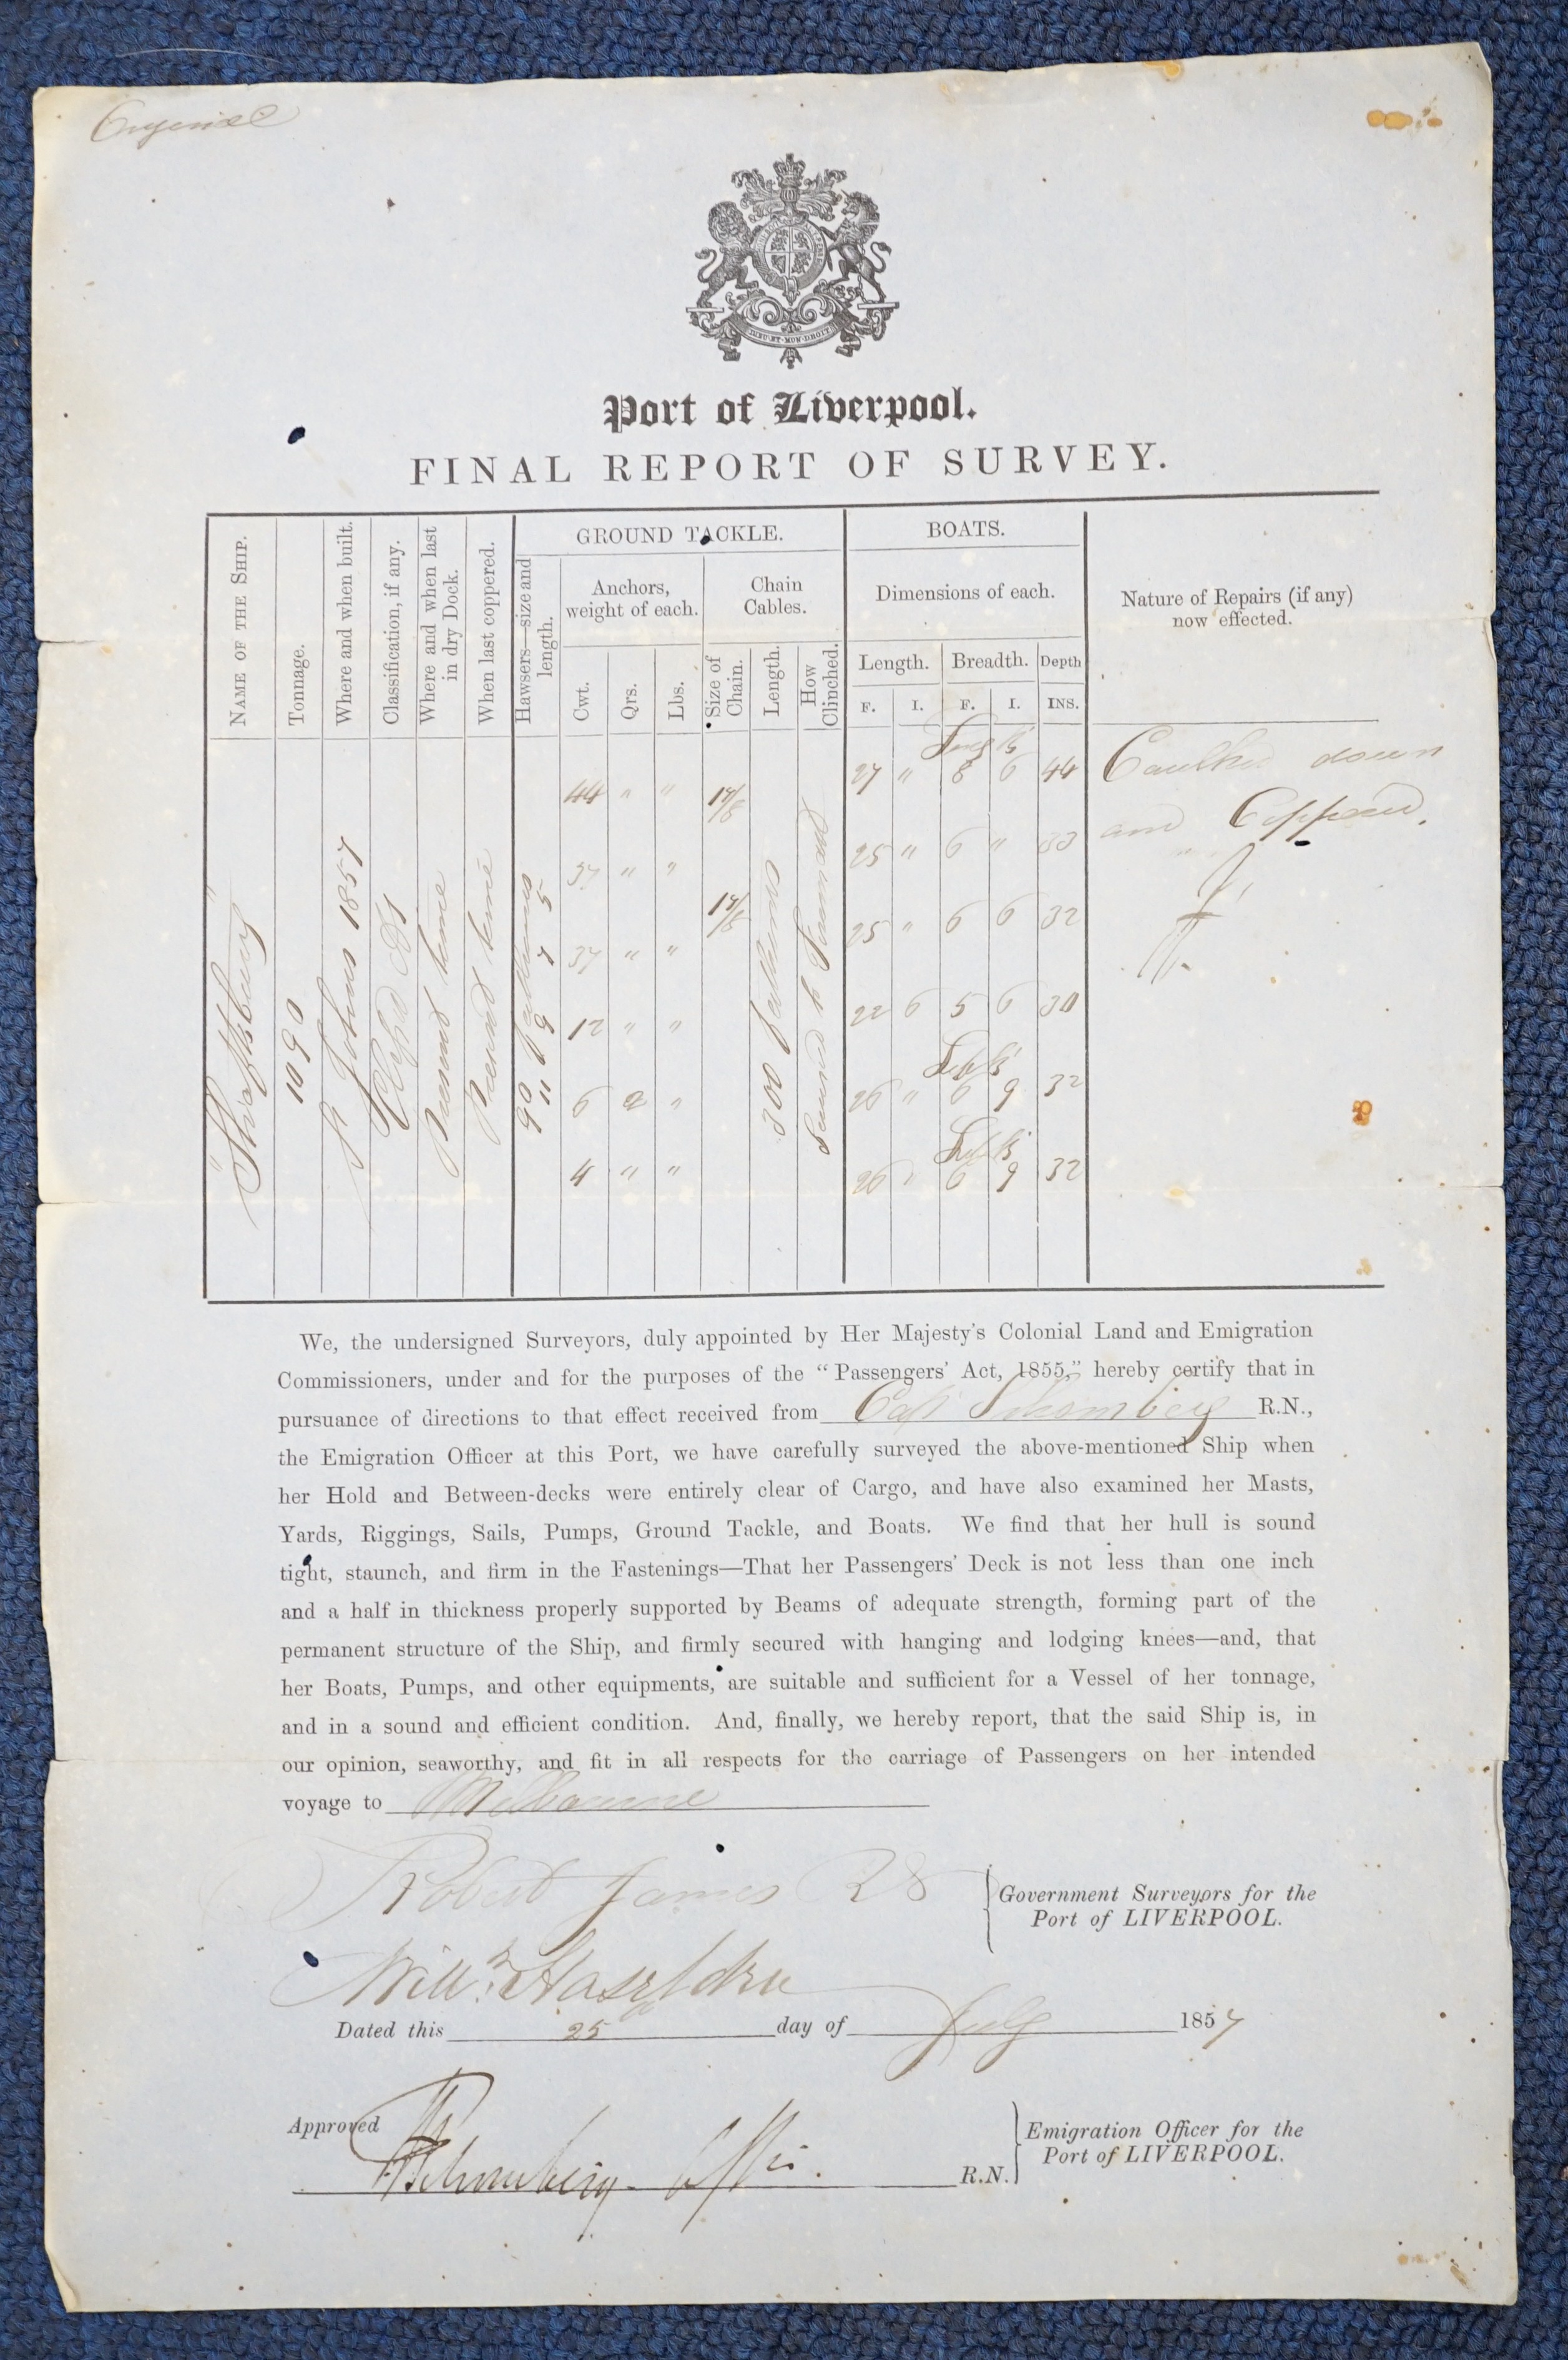 Original
DIEU·ET·MON·DROIT
Port of Liverpool.
FINAL REPORT OF SURVEY.
NAME OF THE SHIP.
Tonnage.
Where and when built.
Classification, if any.
Where and when last
in dry Dock.
When last coppered.
GROUND TACKLE.
Hawsers—size and
length.
Anchors,
weight of each.
Cwt.
Qrs.
Lbs.
Chain
Cables.
Size of
Chain.
Length.
How
Clinched.
BOATS.
Dimensions of each.
Length. Breadth. Depth
F. I. F. I. INS.
Nature of Repairs (if any)
now effected.
"Shaftsbury"
1090
St Johns 1857
Present time
Present time
90 Fathoms
11 9 7 5
44 " "
37 " "
37 " "
12 " "
6 2 "
4 " "
1 7/8
1 7/8
300 Fathoms
Secured to
27 " 8 6 44
25 " 6 " 33
25 " 6 6 32
22 6 5 6 30
26 " 6 9 32
26 " 6 9 32
Caulked down
and Coppered.
We, the undersigned Surveyors, duly appointed by Her Majesty's Colonial Land and Emigration
Commissioners, under and for the purposes of the "Passengers' Act, 1855," hereby certify that in
pursuance of directions to that effect received from Capt Schomberg R.N.,
the Emigration Officer at this Port, we have carefully surveyed the above-mentioned Ship when
her Hold and Between-decks were entirely clear of Cargo, and have also examined her Masts,
Yards, Riggings, Sails, Pumps, Ground Tackle, and Boats. We find that her hull is sound
tight, staunch, and firm in the Fastenings—That her Passengers' Deck is not less than one inch
and a half in thickness properly supported by Beams of adequate strength, forming part of the
permanent structure of the Ship, and firmly secured with hanging and lodging knees—and, that
her Boats, Pumps, and other equipments, are suitable and sufficient for a Vessel of her tonnage,
and in a sound and efficient condition. And, finally, we hereby report, that the said Ship is, in
our opinion, seaworthy, and fit in all respects for the carriage of Passengers on her intended
voyage to Melbourne
Robert James
Government Surveyors for the
Port of LIVERPOOL.
Willm Haseldine
Dated this 25 day of July 1857
Approved
Schomberg
R.N.
Emigration Officer for the
Port of LIVERPOOL.